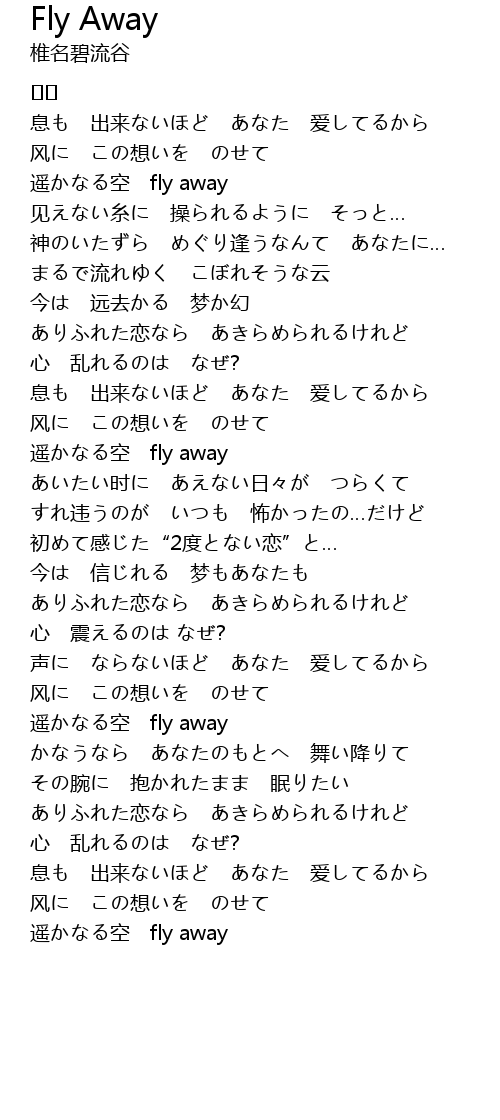 Fly Away
椎名碧流谷
息も　出来ないほど　あなた　爱してるから
风に　この想いを　のせて
遥かなる空　fly away
见えない糸に　操られるように　そっと...
神のいたずら　めぐり逢うなんて　あなたに...
まるで流れゆく　こぼれそうな云
今は　远去かる　梦か幻
ありふれた恋なら　あきらめられるけれど
心　乱れるのは　なぜ?
息も　出来ないほど　あなた　爱してるから
风に　この想いを　のせて
遥かなる空　fly away
あいたい时に　あえない日々が　つらくて
すれ违うのが　いつも　怖かったの...だけど
初めて感じた“2度とない恋”と...
今は　信じれる　梦もあなたも
ありふれた恋なら　あきらめられるけれど
心　震えるのは なぜ?
声に　ならないほど　あなた　爱してるから
风に　この想いを　のせて
遥かなる空　fly away
かなうなら　あなたのもとへ　舞い降りて
その腕に　抱かれたまま　眠りたい
ありふれた恋なら　あきらめられるけれど
心　乱れるのは　なぜ?
息も　出来ないほど　あなた　爱してるから
风に　この想いを　のせて
遥かなる空　fly away